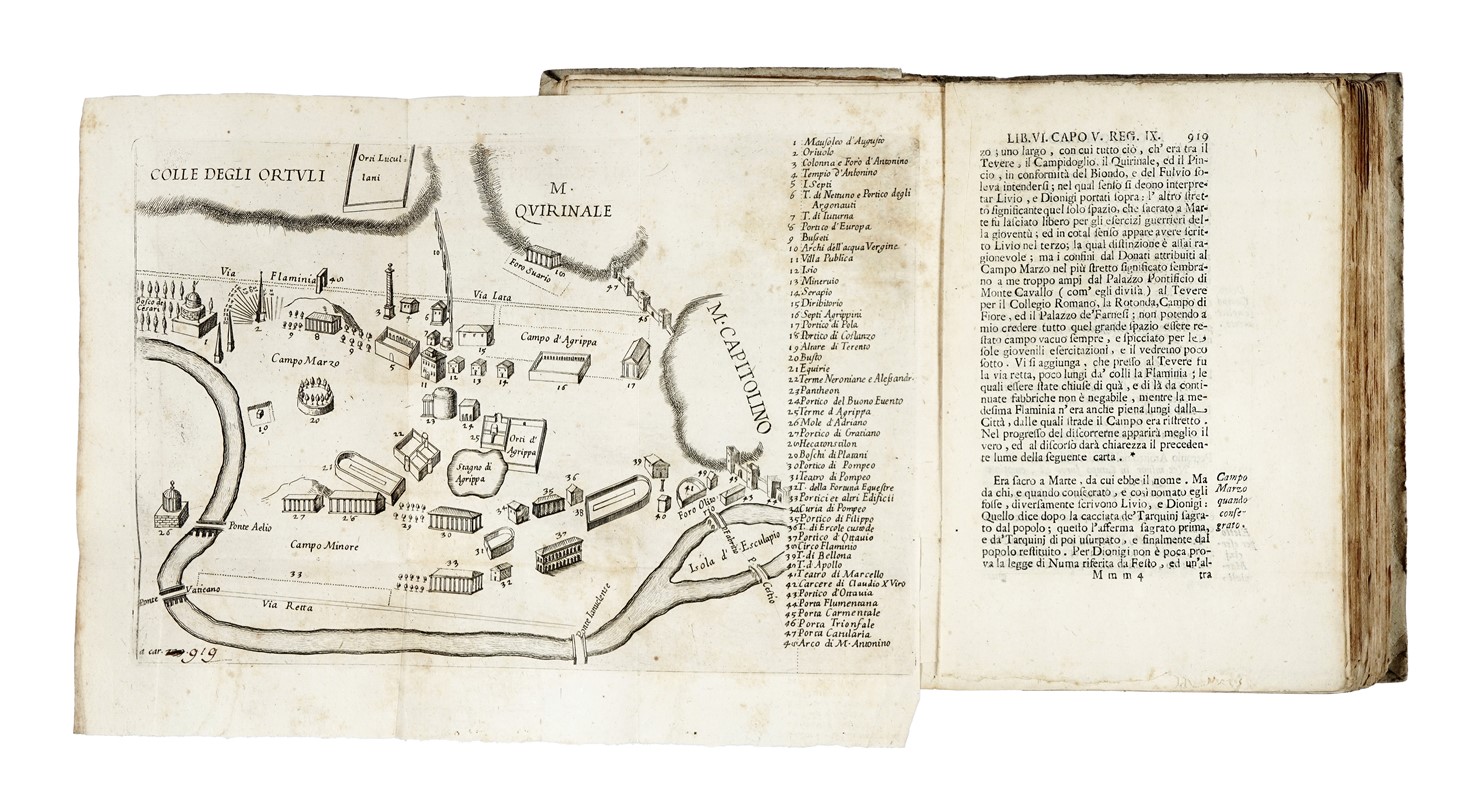 COLLE DEGLI ORTVLI
Orti Lucul-
lani
M.
QVIRINALE
Foro Suario
18
47
10
Via Flaminia
48
Via Lata
46
Bosco de
Cesari
1
2
3
4
6
9
8
9
5
15
Campo d'Agrippa
Campo Marzo
11
12
13
14
16
17
M. CAPITOLINO
19
20
23
24
22
25
Orti d'
Agrippa
Stagno di
Agrippa
21
27
28
26
Ponte Aelio
30
34
35
36
38
39
40
41
Foro Olitorio
42
43
45
Campo Minore
31
32
37
33
33
Ponte Vaticano
Via Retta
Ponte Sublicio
P. Fabrizio
Isola d'Esculapio
P. Cestio
a car. 919
1 Mausoleo d'Augusto
2 Oriuolo
3 Colonna e Foro d'Antonino
4 Tempio d'Antonino
5 I Septi
6 T. di Nettuno e Portico degli
Argonauti
7 T. di Iuturna
8 Portico d'Europa
9 Busseti
10 Archi dell'acqua Vergine
11 Villa Publica
12 Isio
13 Mineruio
14 Serapio
15 Diribitorio
16 Septi Agrippini
17 Portico di Pola
18 Portico di Costanzo
19 Altare di Terento
20 Busto
21 Equirie
22 Terme Neroniane e Alessandr.
23 Pantheon
24 Portico del Buono Euento
25 Terme d'Agrippa
26 Mole d'Adriano
27 Portico di Gratiano
28 Hecatonstilon
29 Boschi di Platani
30 Portico di Pompeo
31 Teatro di Pompeo
32 T. della Fortuna Equestre
33 Portici et altri Edificii
34 Curia di Pompeo
35 Portico di Filippo
36 T. di Ercole custode
37 Portico d'Ottauio
38 Circo Flaminio
39 T. di Bellona
40 T. d'Apollo
41 Teatro di Marcello
42 Carcere di Claudio X Viro
43 Portico d'Ottauia
44 Porta Flumentana
45 Porta Carmentale
46 Porta Trionfale
47 Porta Catularia
48 Arco di M. Antonino
LIB. VI. CAPO V. REG. IX. 919
zo; uno largo, con cui tutto ciò, ch' era tra il
Tevere, il Campidoglio, il Quirinale, ed il Pin-
cio, in conformità del Biondo, e del Fulvio so-
leva intendersi; nel qual senso si deono interpre-
tar Livio, e Dionigi portati sopra: l' altro stret-
to significante quel solo spazio, che sacrato a Mar-
te fu lasciato libero per gli esercizi guerrieri del-
la gioventù; ed in cotal senso appare avere scrit-
to Livio nel terzo; la qual distinzione è assai ra-
gionevole; ma i confini dal Donati attribuiti al
Campo Marzo nel più stretto significato sembra-
no a me troppo ampi dal Palazzo Pontificio di
Monte Cavallo (com' egli divisa) al Tevere
per il Collegio Romano, la Rotonda, Campo di
Fiore, ed il Palazzo de' Farnesi; non potendo a
mio credere tutto quel grande spazio essere re-
stato campo vacuo sempre, e spicciato per le
sole giovenili esercitazioni, e il vedremo poco
sotto. Vi si aggiunga, che presso al Tevere fu
la via retta, poco lungi da' colli la Flaminia; le
quali essere state chiuse di quà, e di là da conti-
nuate fabbriche non è negabile, mentre la me-
desima Flaminia n' era anche piena lungi dalla
Città, dalle quali strade il Campo era ristretto.
Nel progresso del discorrerne apparirà meglio il
vero, ed al discorso darà chiarezza il preceden-
te lume della seguente carta. *
Era sacro a Marte, da cui ebbe il nome. Ma
da chi, e quando consecrato, e così nomato egli
fosse, diversamente scrivono Livio, e Dionigi:
Quello dice dopo la cacciata de' Tarquinj sagra-
to dal popolo; questo l'afferma sagrato prima,
e da' Tarquinj di poi usurpato, e finalmente dal
popolo restituito. Per Dionigi non è poca pro-
va la legge di Numa riferita da Festo, ed un'al-
Campo
Marzo
quando
conse-
grato.
M m m 4 tra